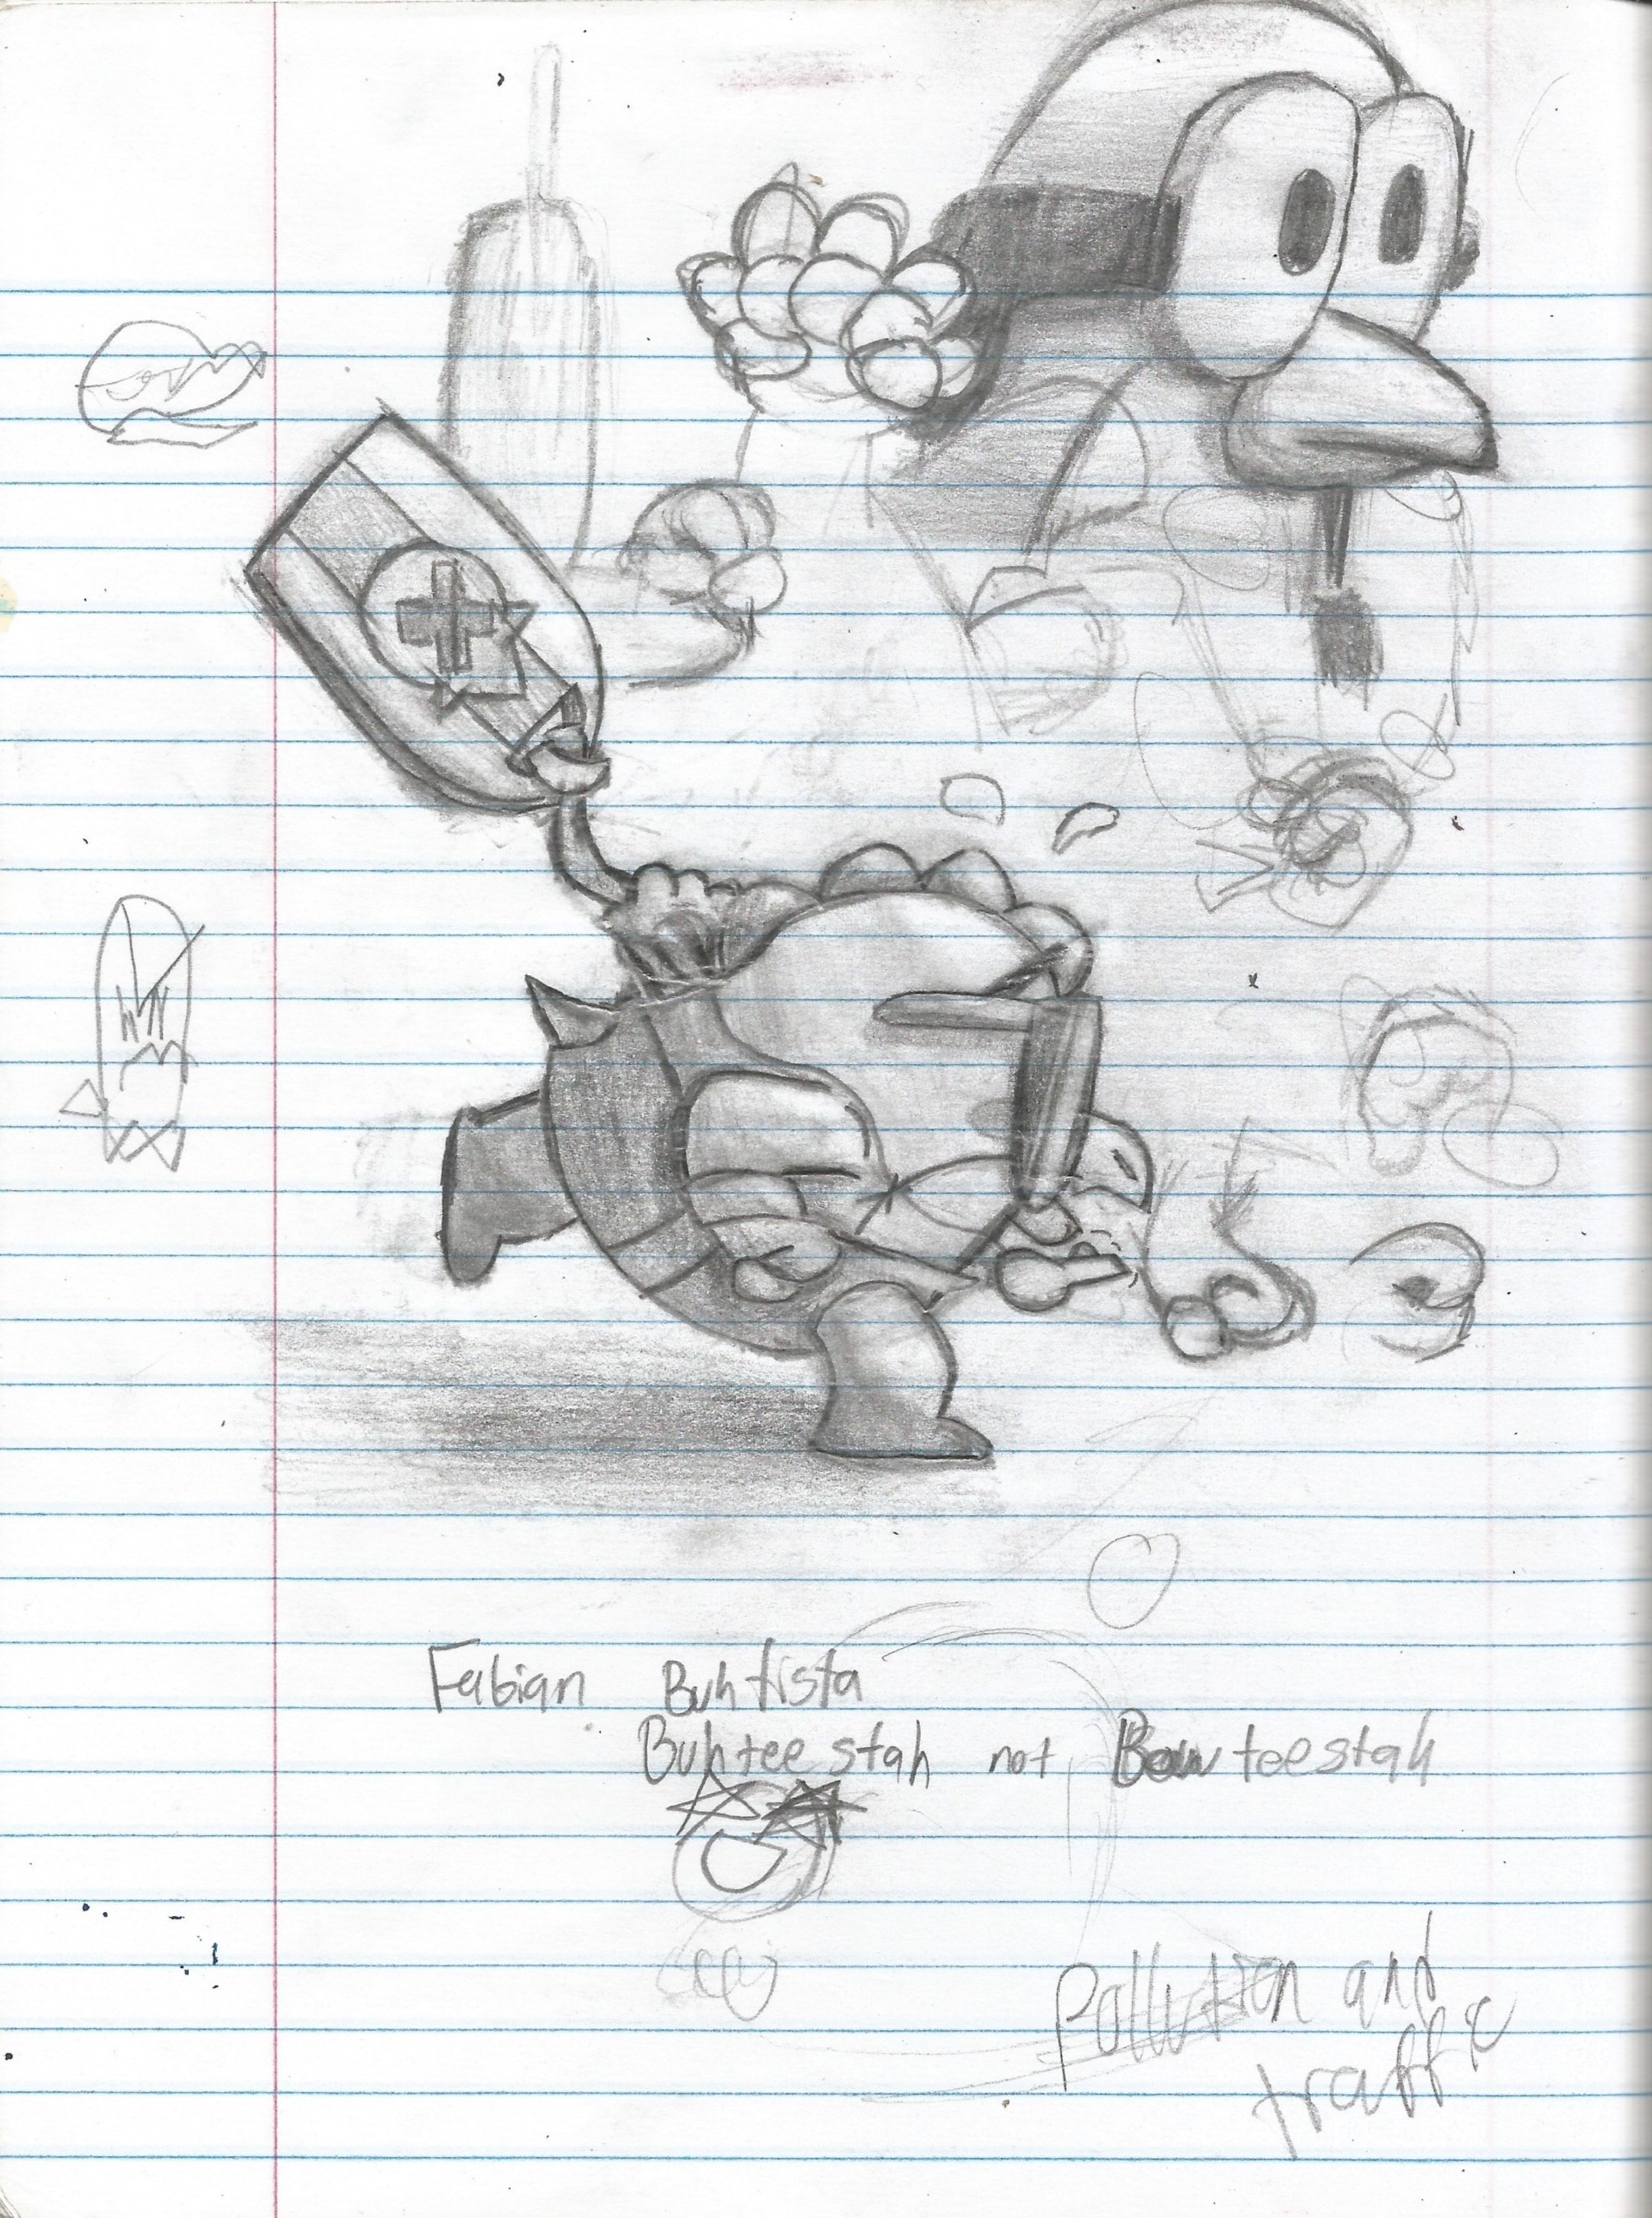 Fabian Buhtista
Buhteestah not Bowteestah
pollution and
traffic